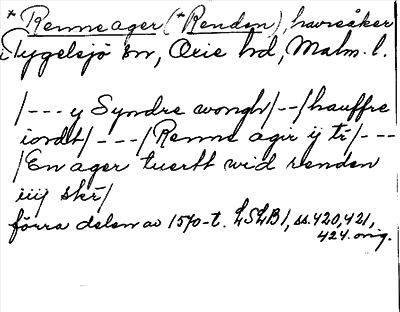 * Renneager (* Renden), havreåker
i Tygelsjö sn, Oxie hd, Malm. l.
/--- y Syndre wongh/--/hauffre
iordt/---/Renne agir ij tr/---
/En ager tuertt wid renden
iiij skr/
förra delen av 1570-t. LSLB 1, ss. 420, 421,
424. orig.